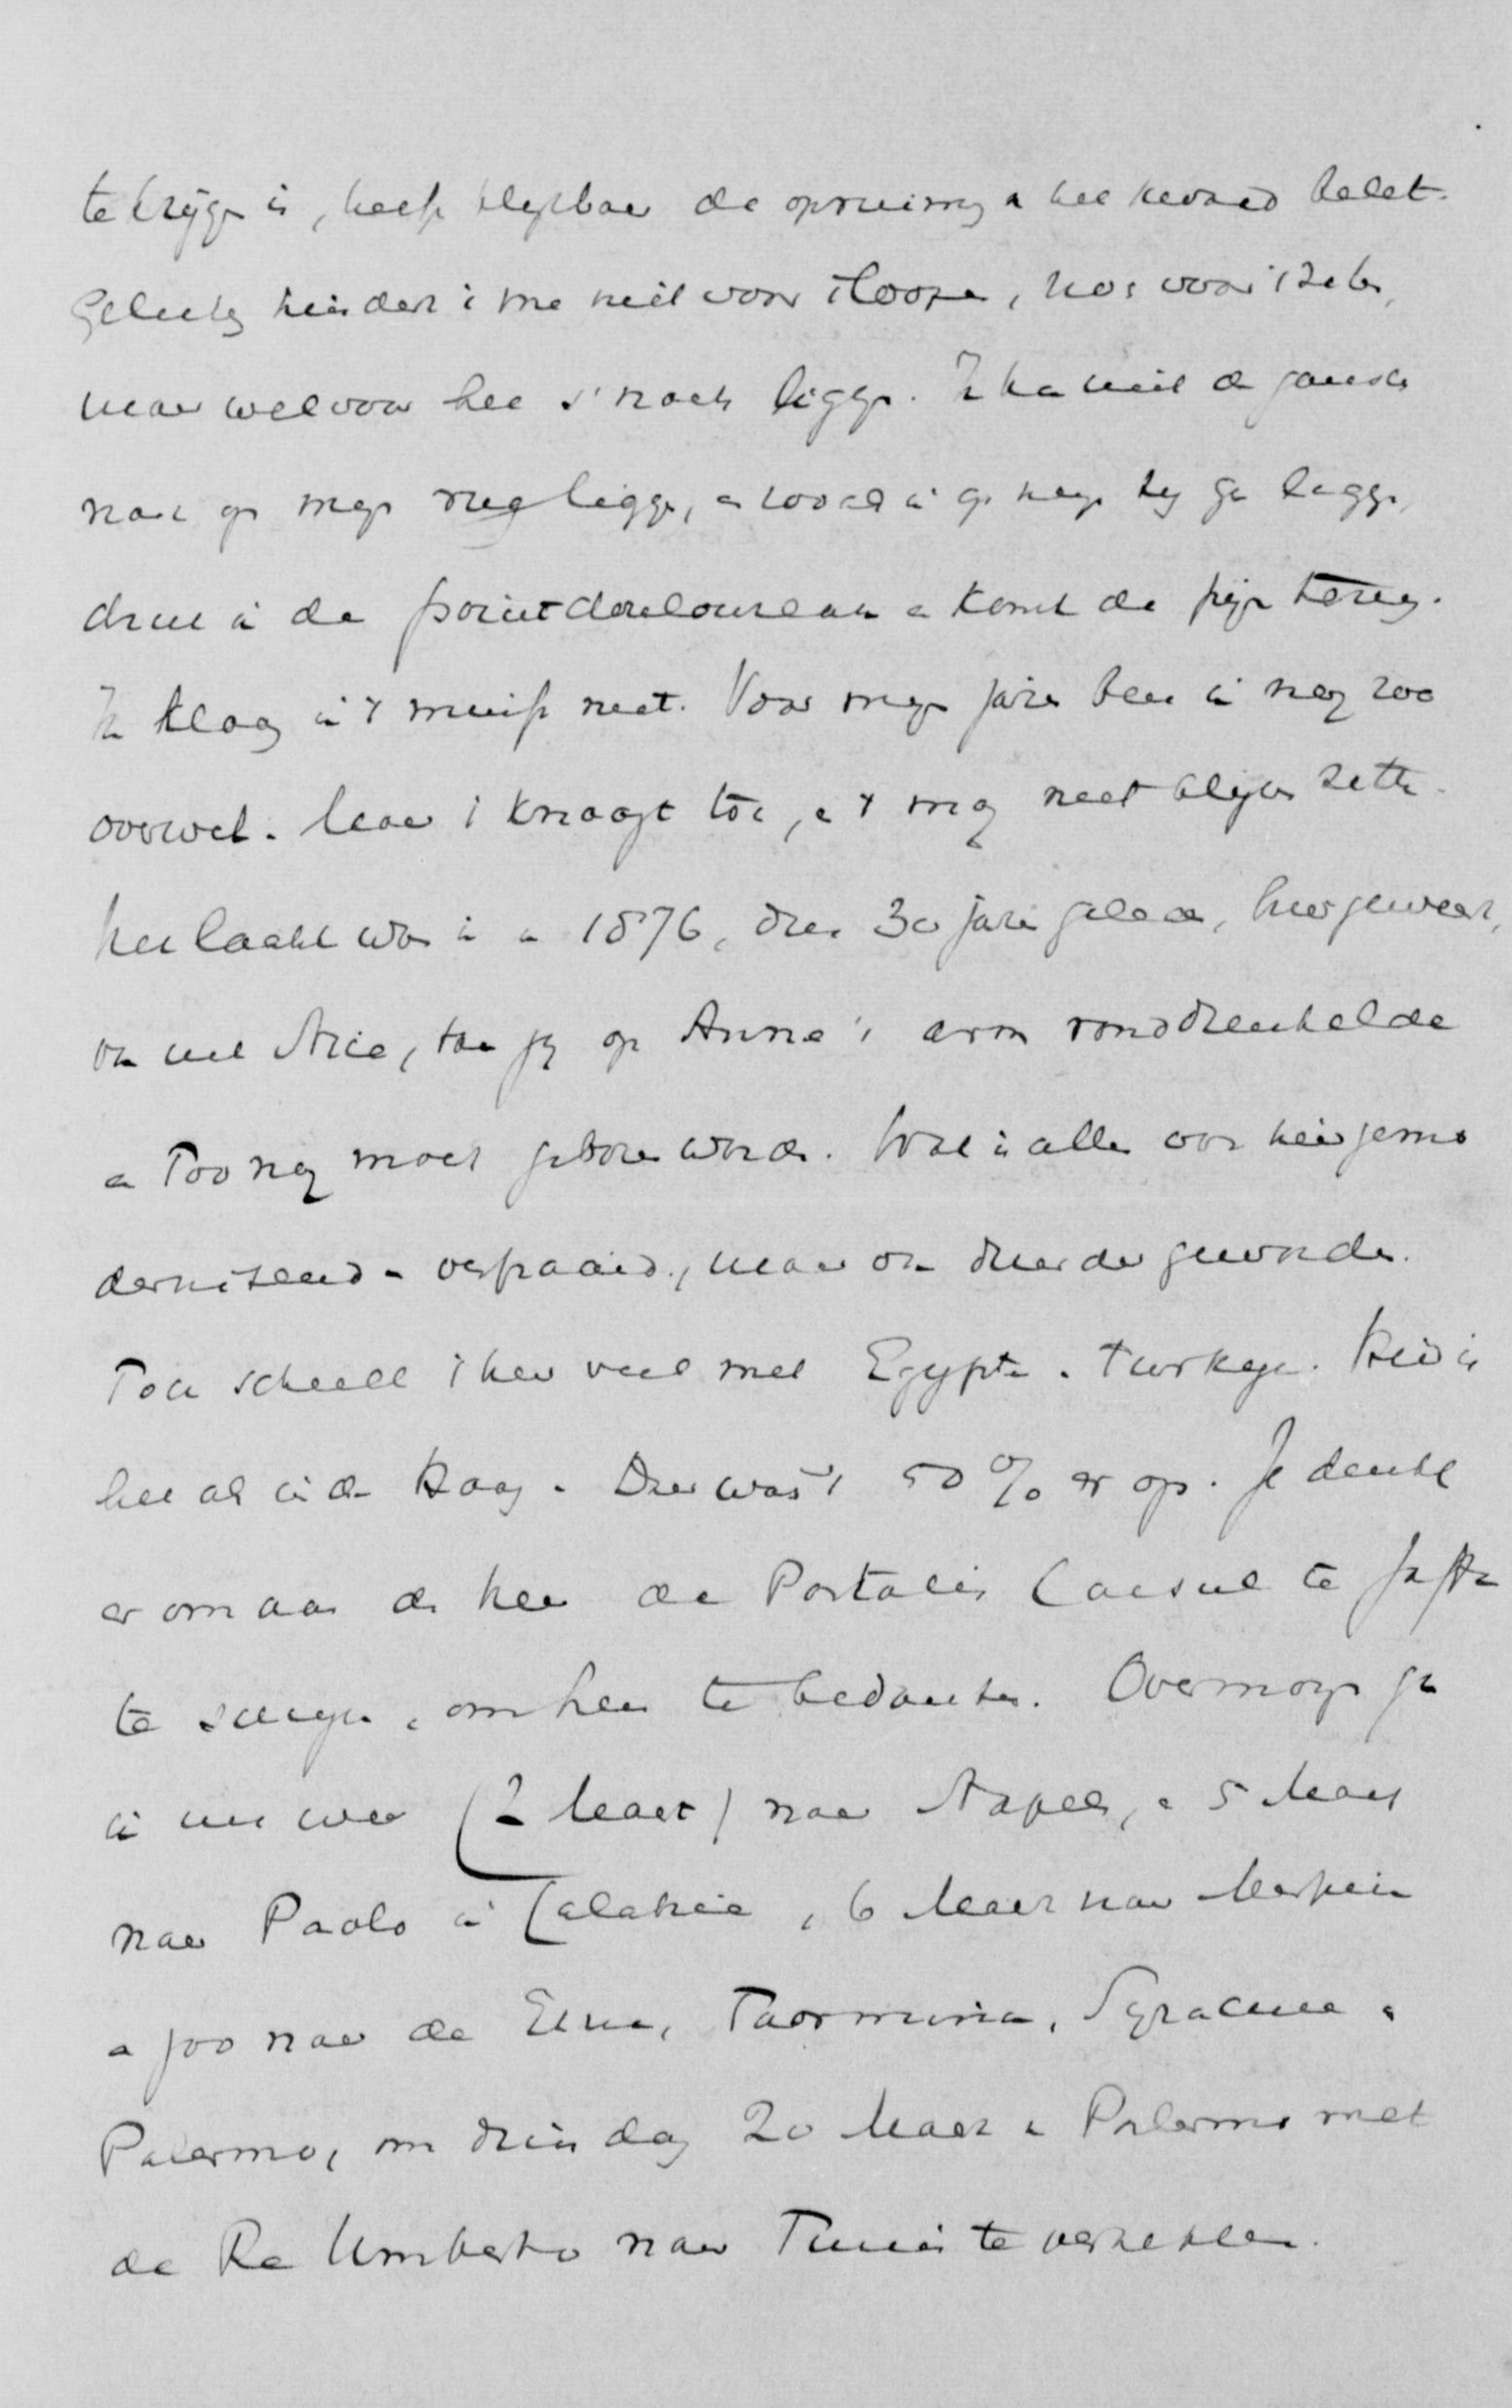 te krijgen is, heeft blijkbaar de opruiming en het kwaad belet.
Gelukkig hindert 't me niet voor 't loopen, noch voor 't zitten,
maar wel voor het 's nachts liggen. Ik kan niet de gansche
nacht op mijn rug liggen, en zoodra ik op mijn zij ga liggen,
druk ik de point douloureux en komt de pijn terug.
Ik klaag intusschen niet. Voor mijn jaren ben ik nog zoo
overwel. Maar 't knaagt toch, en 't mag niet blijven zitten.
Het laatst was ik in 1876, dus 30 jaren geleden, hier geweest,
ook met Nice, toen jij op Anna's arm rondwandelde
en Too nog moest geboren worden. Wat is alles voor hier gemo
derniseerd en verfraaid, maar ook duurder geworden.
Toen scheelde 't hier veel met Egypte en Turkije. Hier is
het als in den Haag. Daar was 't 50 % er op. Je denkt
er om aan den heer de Portalis Consul te Jaffa
te schrijven, om hem te bedanken. Overmorgen ga
ik nu weer (2 Maart) naar Napels, en 5 Maart
naar Paolo in Calabrië, 6 Maart naar Messina
en zoo naar de Etna, Taormina, Syracuse en
Palermo, om dinsdag 20 Maart in Palermo met
de Re Umberto naar Tunis te vertrekken.